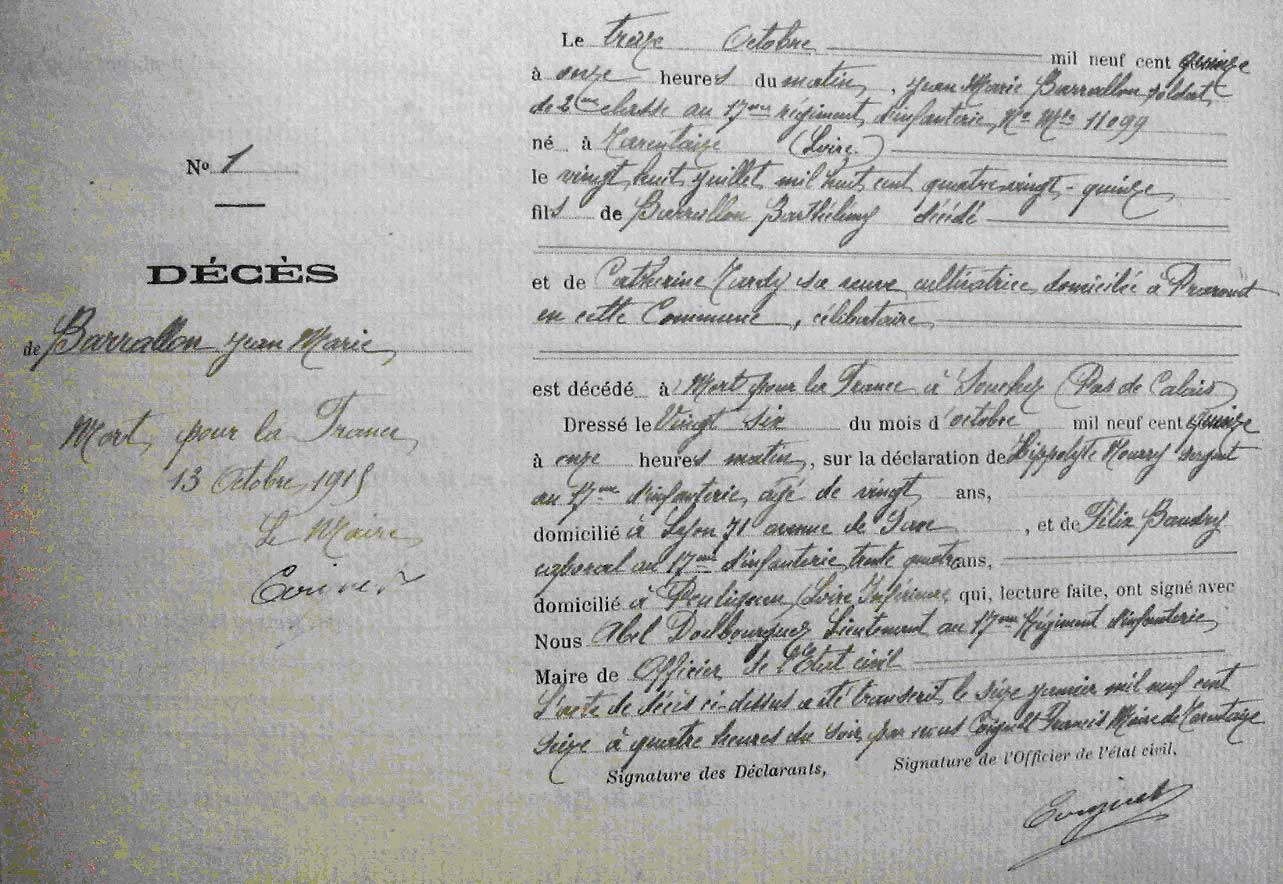 No 1
DÉCÈS
de Barrallon Jean Marie
Mort pour la France
13 Octobre 1915
Le Maire
Le treize Octobre mil neuf cent quinze
à onze heures du matin, Jean Marie Barrallon soldat
de 2me classe au 17me régiment d'infanterie, No Mle 11099
né à Tarentaize (Loire)
le vingt huit juillet mil huit cent quatre vingt-quinze
fils de Barrallon Barthélemy décédé
et de Catherine Tardy sa veuve, cultivatrice, domiciliée à
en cette Commune, célibataire
est décédé à Mort pour la France à Souchez (Pas de Calais)
Dressé le Vingt six du mois d'octobre mil neuf cent quinze
à onze heures matin, sur la déclaration de Hippolyte Mourry sergent
au 17me d'infanterie, âgé de vingt ans,
domicilié à Lyon 71 avenue de Saxe, et de Félix Baudry
caporal au 17me d'infanterie trente quatre ans,
domicilié à Pouliguen (Loire Inférieure, qui, lecture faite, ont signé avec
Nous Abel Lieutenant au 17me Régiment d'infanterie
Maire de Officier de l'Etat civil
L'acte de décès ci-dessus a été transcrit le seize janvier mil neuf cent
seize à quatre heures du soir, par nous Coignet Francis Maire de Tarentaize
Signature des Déclarants, Signature de l'Officier de l'état civil.
Coignet